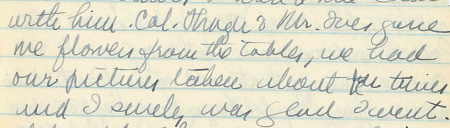 with him. Col. Thage & Mr. Ives gave
me flowers from the tables, we had
our pictures taken about times
and I surely was glad I went.